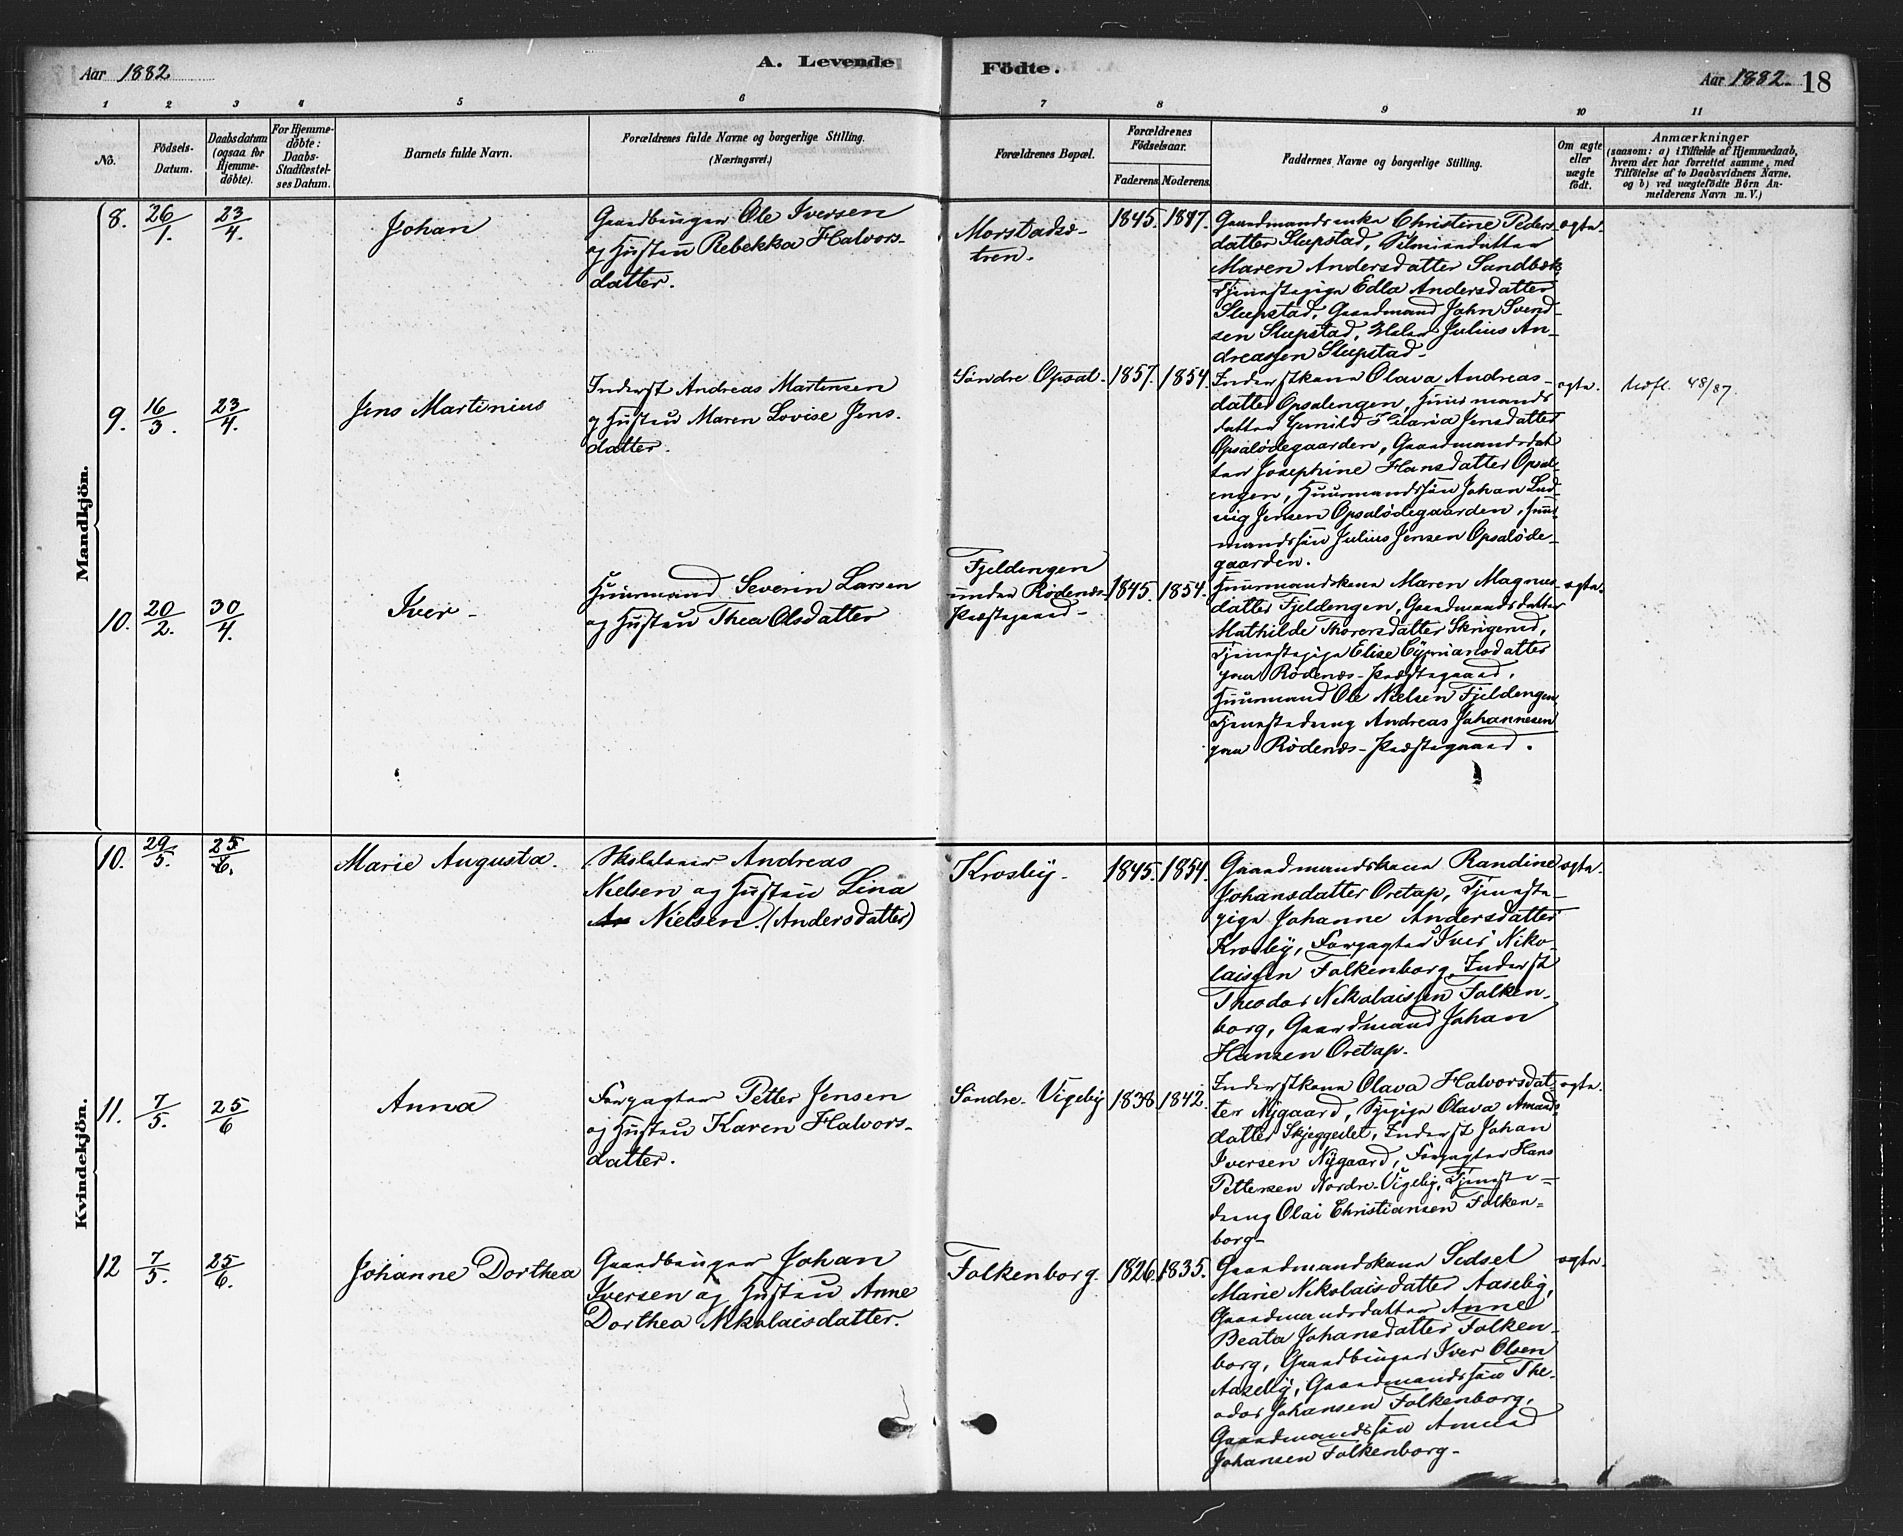 Aar 1882
A. Levende
Födte.
Aar 1882. 18
1 2 3 4 5 6 7 8 9 10 11
Nö.
Födsels-
Datum.
Daabsdatum
(ogsaa for
Hjemme-
döbte).
For Hjemme-
döbte:
Daabs-
Stadfæstel-
ses Datum.
Barnets fulde Navn.
Forældrenes fulde Navne og borgerlige Stilling.
(Næringsvei.)
Forældrenes Bopæl.
Forældrenes
Födselsaar.
Faderens. Moderens.
Faddernes Navne og borgerlige Stilling.
Om ægte
eller
uægte
födt.
Anmærkninger
(saasom: a) i Tilfælde af Hjemmedaab,
hvem der har forrettet samme, med
Tilföielse af to Daabsvidners Navne,
og b) ved uægtefödte Börn An-
melderens Navn m. V.)
Mandkjön.
8. 26/1. 23/4. Johan
Gaardbruger Ole Iversen
og Hustru Rebekka Halvors-
datter.
Morstadsæ-
tren.
1845. 1847.
Gaardmandsenke Christine Peders-
datter Slupstad,
Maren Andersdatter Sandbæk,
Tjenestepige Edla Andersdatter
Slupstad, Gaardmand John Svend-
sen Slupstad, Julius An-
dreassen Slupstad.
ægte.
9. 16/3. 23/4. Jens Martinius
Inderst Andreas Martinsen
og Hustru Maren Lovise Jens-
datter.
Søndre Opsal. 1857. 1854.
Inderstkone Olava Andreas-
datter Opsalengen, Huusmands-
datter Gunild Helaria Jensdatter
Opsalødegaarden, Gaardmandsdat-
ter Josephine Hansdatter Opsal-
engen, Huusmandssøn Johan Lud-
vig Jensen Opsalødegaarden, Huus-
mandssøn Julius Jensen Opsaløde-
gaarden.
ægte.
Udfl. 48/87.
10. 20/2. 30/4. Iver
Huusmand Severin Larsen
og Hustru Thea Olsdatter
Fjeldengen
under Rødenæs-
Præstegaard
1845. 1854.
Huusmandskone Maren Magnus-
datter Fjeldengen, Gaardmandsdatter
Mathilde Thorersdatter Skrigerud,
Tjenestepige Elise Cyprianesdatter
paa Rødenæs-Præstegaard,
Huusmand Ole Nielsen Fjeldengen,
Tjenestedreng Andreas Johannesen
paa Rødenæs-Præstegaard.
ægte.
Kvindekjön.
10. 29/5. 25/6. Marie Augusta.
Skolelærer Andreas
Nielsen og Hustru Lina
Nielsen. (Andersdatter)
Krosby. 1845. 1854.
Gaardmandskone Randine
Johansdatter Oretap, Tjeneste-
pige Johanne Andersdatter
Krosby, Forpagter Iver Niko-
laissen Falkenborg, Inderst
Theodor Nikolaissen Falken-
borg, Gaardmand Johan
Hansen Oretap.
ægte.
11. 7/5. 25/6 Anna
Forpagter Petter Jensen
og Hustru Karen Halvors-
datter.
Søndre-Vigeby 1838 1842.
Inderstkone Olava Halvorsdat-
ter Nygaard, Sypige Olava Amunds-
datter Skjeggeilet, Inderst Johan
Iversen Nygaard, Forpagter Hans
Pettersen Nordre-Vigeby, Tjeneste-
dreng Olai Christiansen Falken-
borg
ægte.
12 7/5. 25/6. Johanne Dorthea
Gaardbruger Johan
Iversen og Hustru Anne
Dorthea Nikolaisdatter.
Falkenborg. 1826 1835.
Gaardmandskone Sedsel
Marie Nikolaisdatter Aaseby,
Gaardmandsdatter Anne
Beata Johansdatter Falken-
borg, Gaardbruger Iver Olsen
Aaseby, Gaardmandssøn The-
odor Johansen Falkenborg,
Gaardmandssøn Amund
Johansen Falkenborg
ægte.